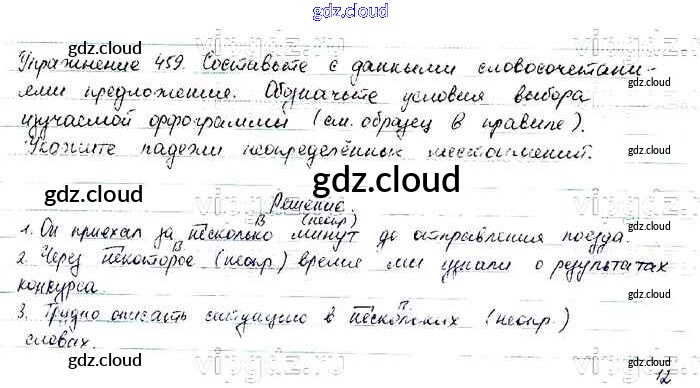 gdz.cloud
Упражнение 459. Составьте с данными словосочетани-
ями предложения. Обозначьте условия выбора
изучаемой орфограммы (см. образец в правиле).
Укажите падежи неопределённых местоимений.
gdz.cloud
Решение.
В (неопр)
1. Он приехал за несколько минут до отправления поезда.
В
2. Через некоторое (неопр.) время мы узнали о результатах
конкурса
П
3. Трудно описать ситуацию в нескольких (неопр.)
словах.
12
gdz.cloud gdz.cloud
gdz.cloud
gdz.cloud gdz.cloud
gdz.cloud gdz.cloud
gdz.cloud gdz.cloud
vipgdz
vipgdz